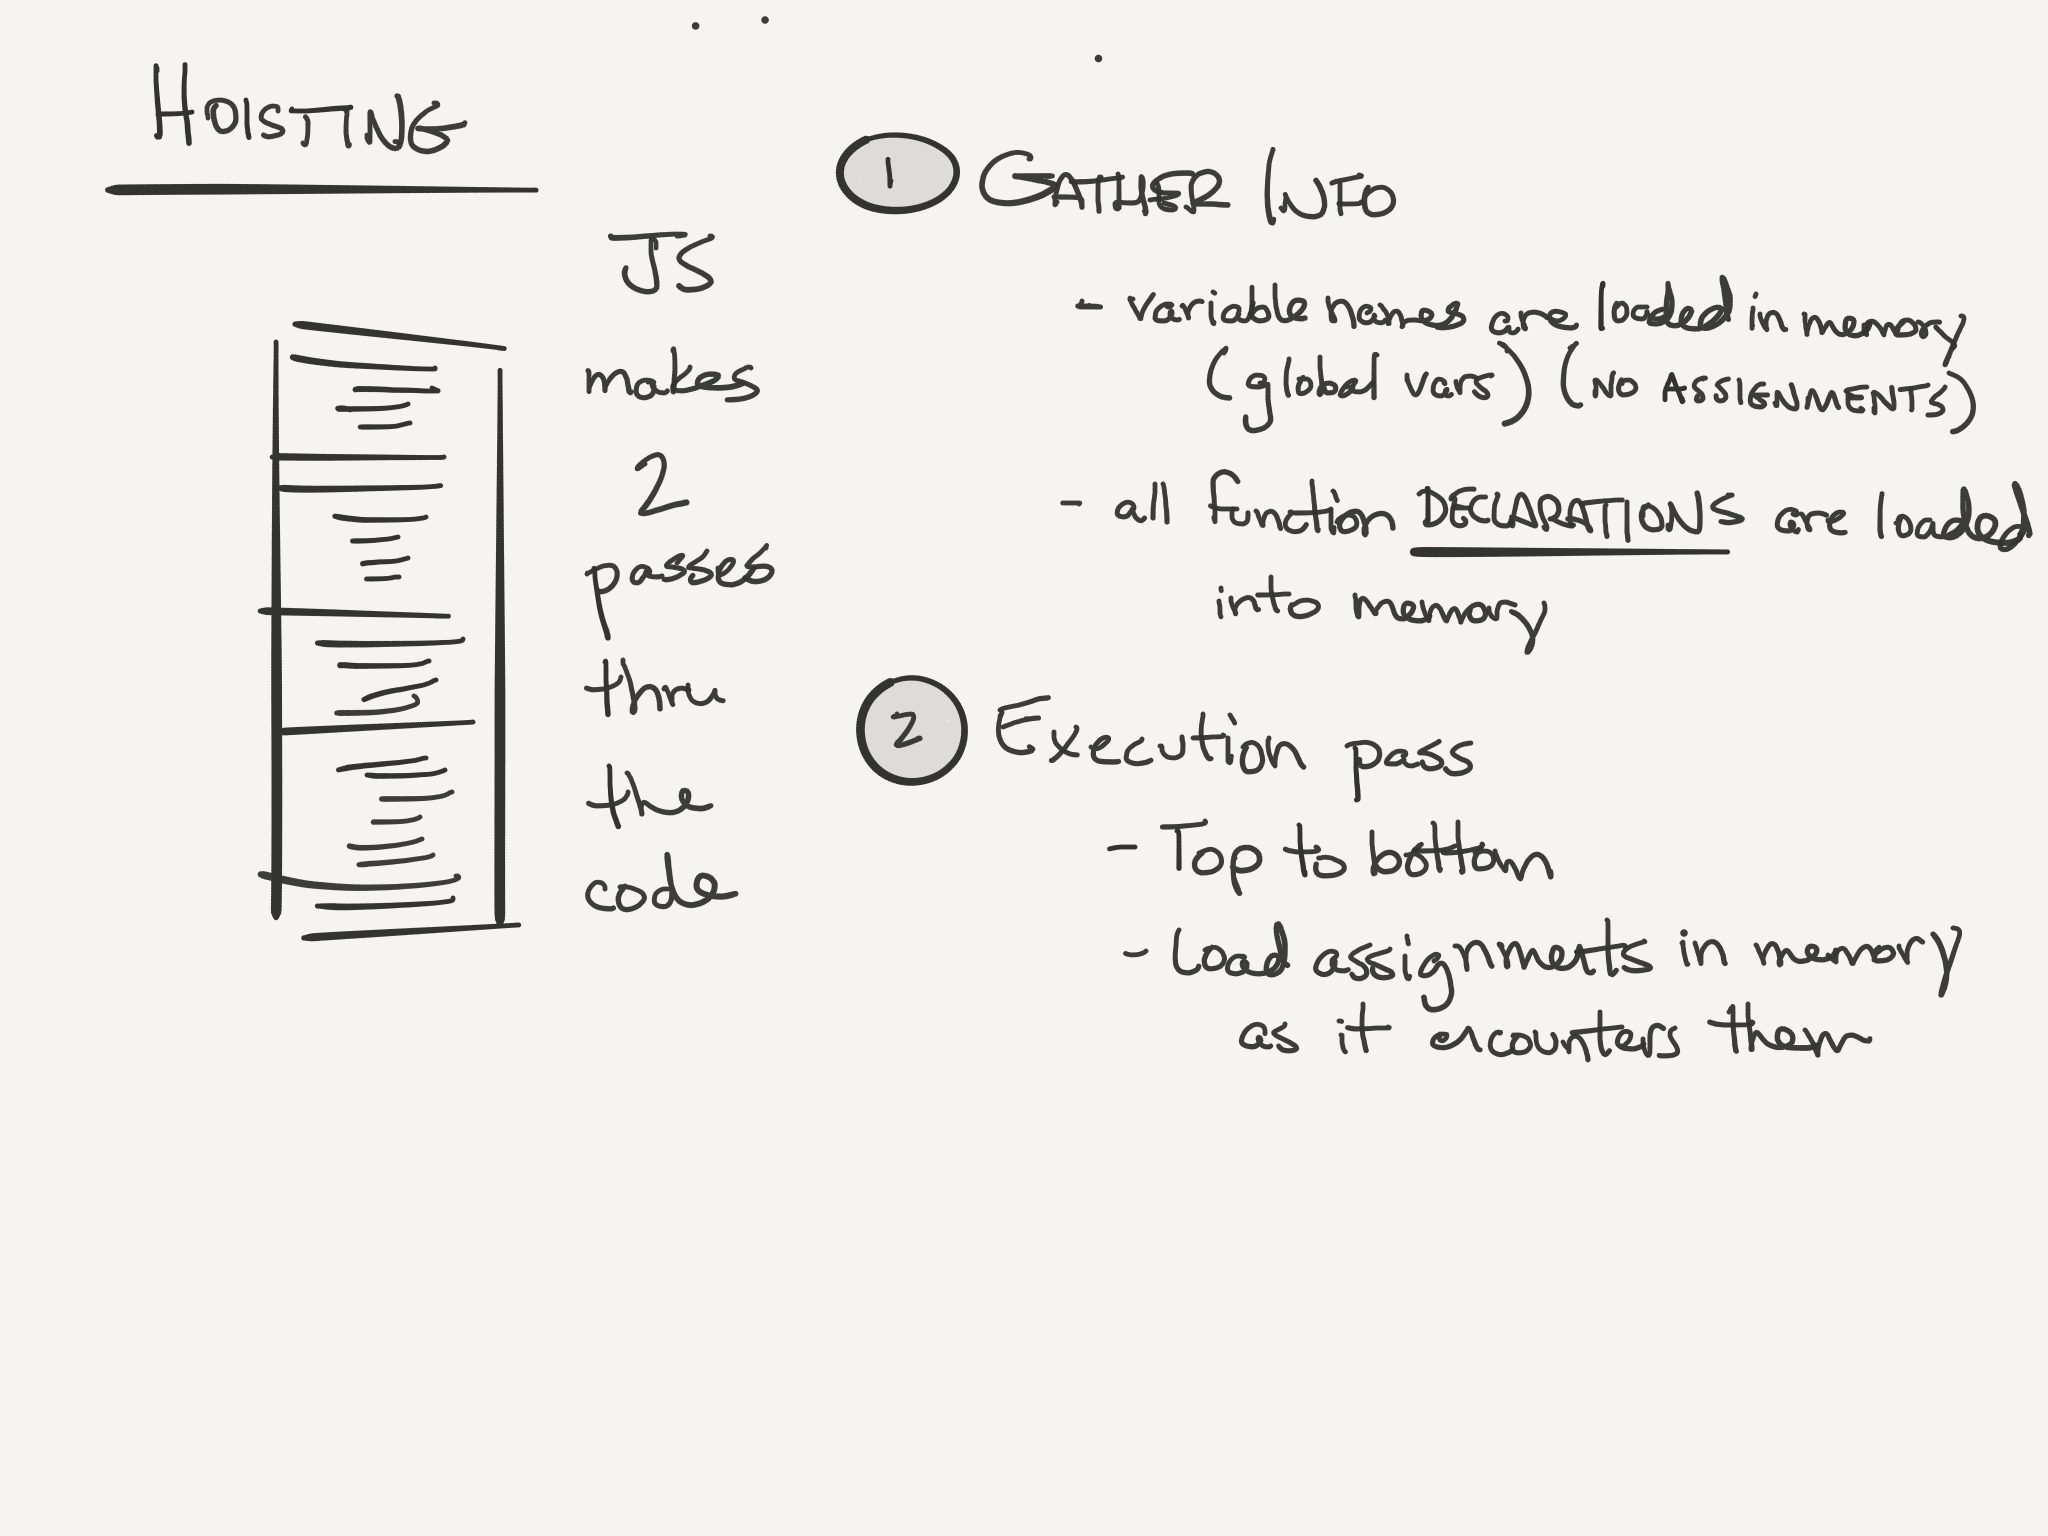 HOISTING
JS
makes
2
passes
thru
the
code
1 GATHER INFO
- variable names are loaded in memory
(global vars) (NO ASSIGNMENTS)
- all function DECLARATIONS are loaded
into memory
2 Execution pass
- Top to bottom
- Load assignments in memory
as it encounters them